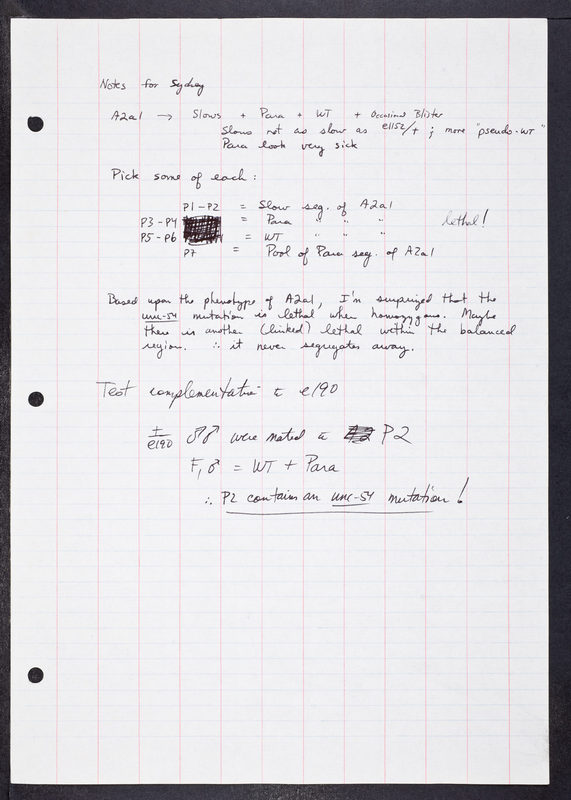 Notes for Sydney
A2a1 → Slows + Para + WT + Occasional Blister
Slows not as slow as e1152/+ ; more "pseudo-WT"
Para look very sick
Pick some of each :
P1-P2 = Slow seg. of A2a1
P3-P4 = Para " " " lethal!
P5-P6 = WT " " "
P7 = Pool of Para seg. of A2a1
Based upon the phenotype of A2a1, I'm surprized that the
unc-54 mutation is lethal when homozygous. Maybe
there is another (linked) lethal within the balanced
region. ∴ it never segregates away.
Test complementation c̄ e190
+/e190 ♂♂ were mated c̄ P2
F1 ♂ = WT + Para
∴ P2 contains an unc-54 mutation!